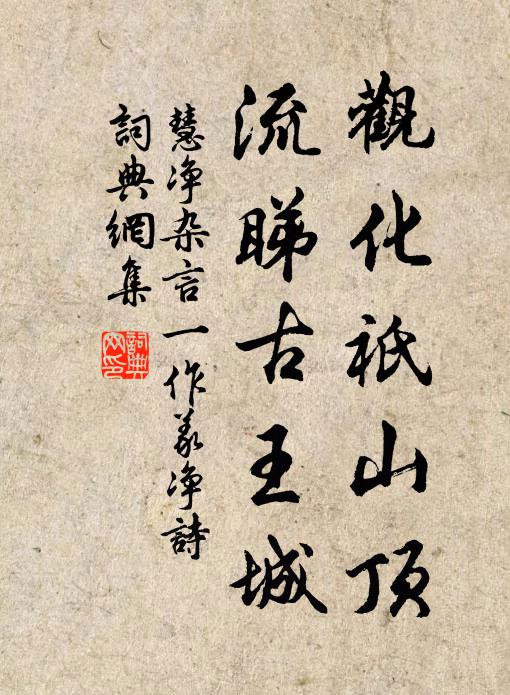 觀化祇山頂
流睇古王城
慧净杂言一作義净詩
詞典網集
詞典網印